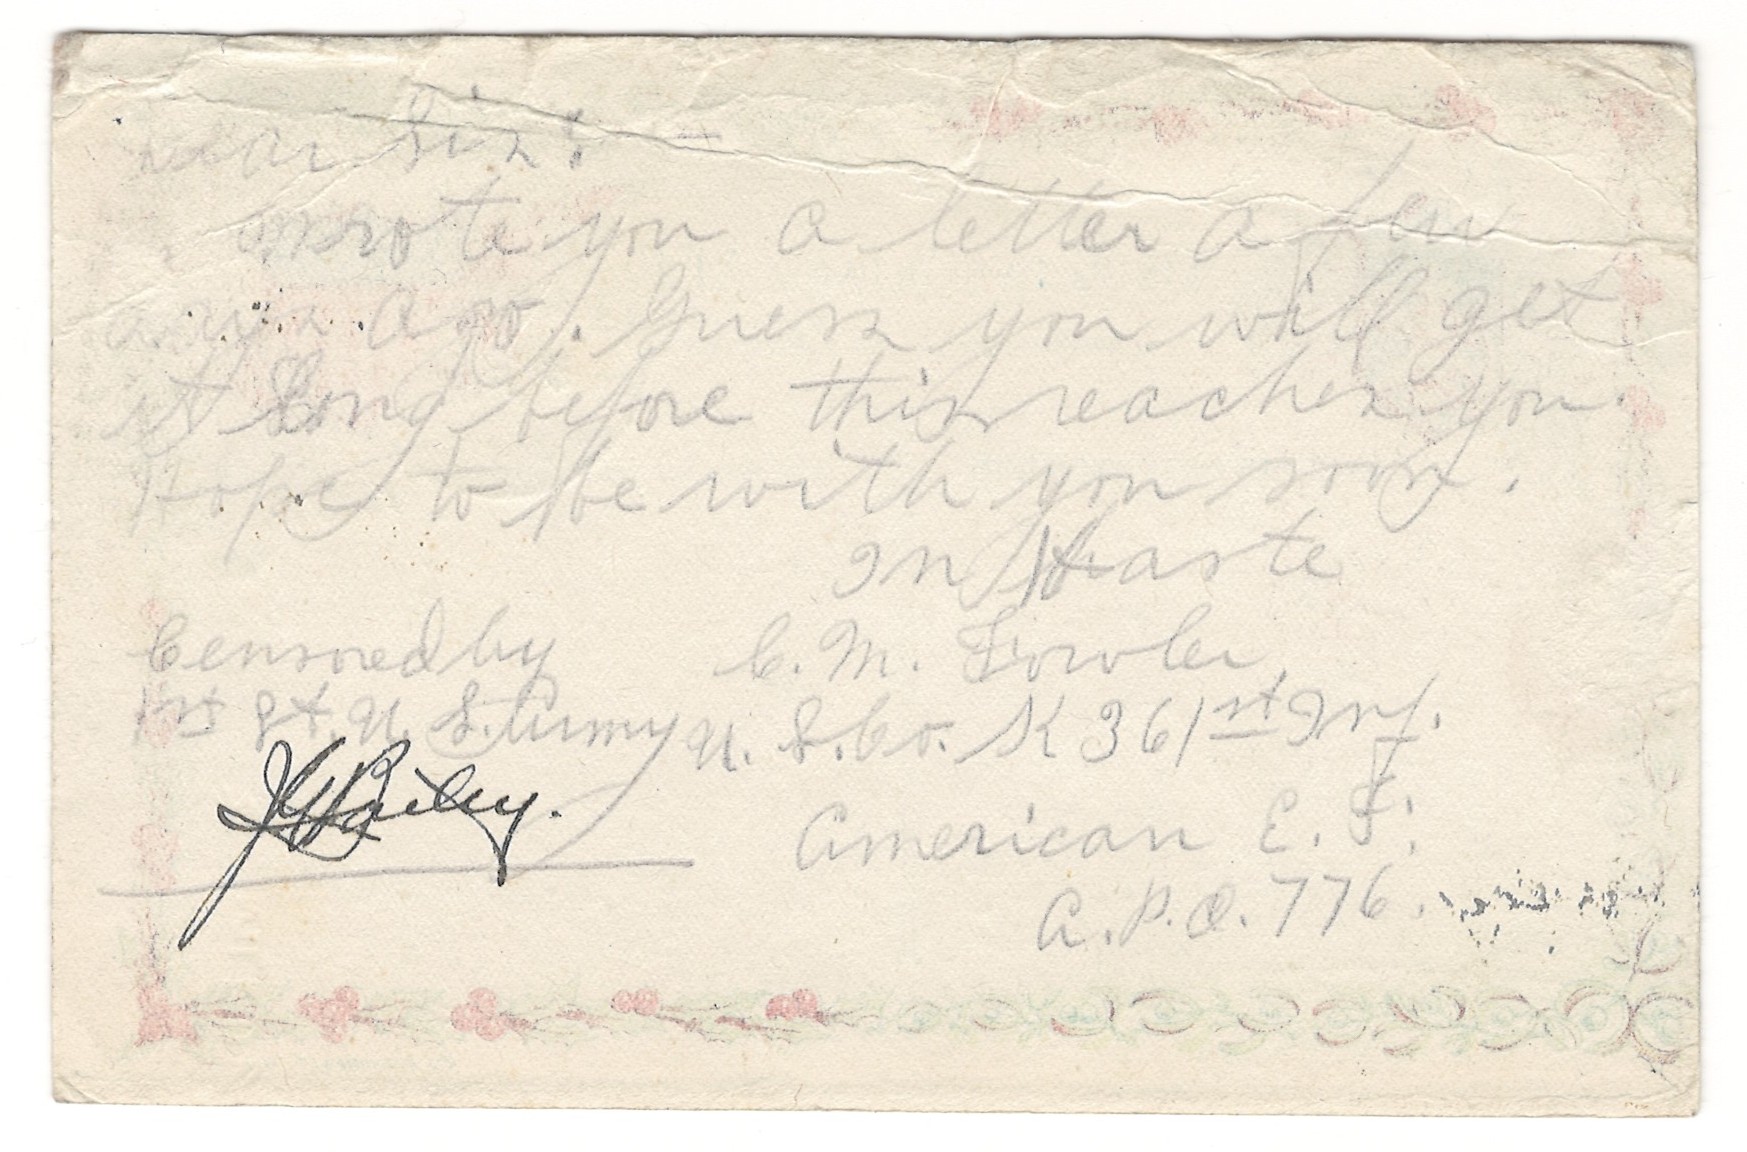 Dear Sis: —
wrote you a letter a few
days ago. Guess you will get
it long before this reaches you.
Hope to be with you soon.
In Haste
Censored by C. M. Fowler
1st Lt. U. S. Army U. S. Co. K 361st Inf.
J G Bailey. American E. F.
A. P. O. 776.